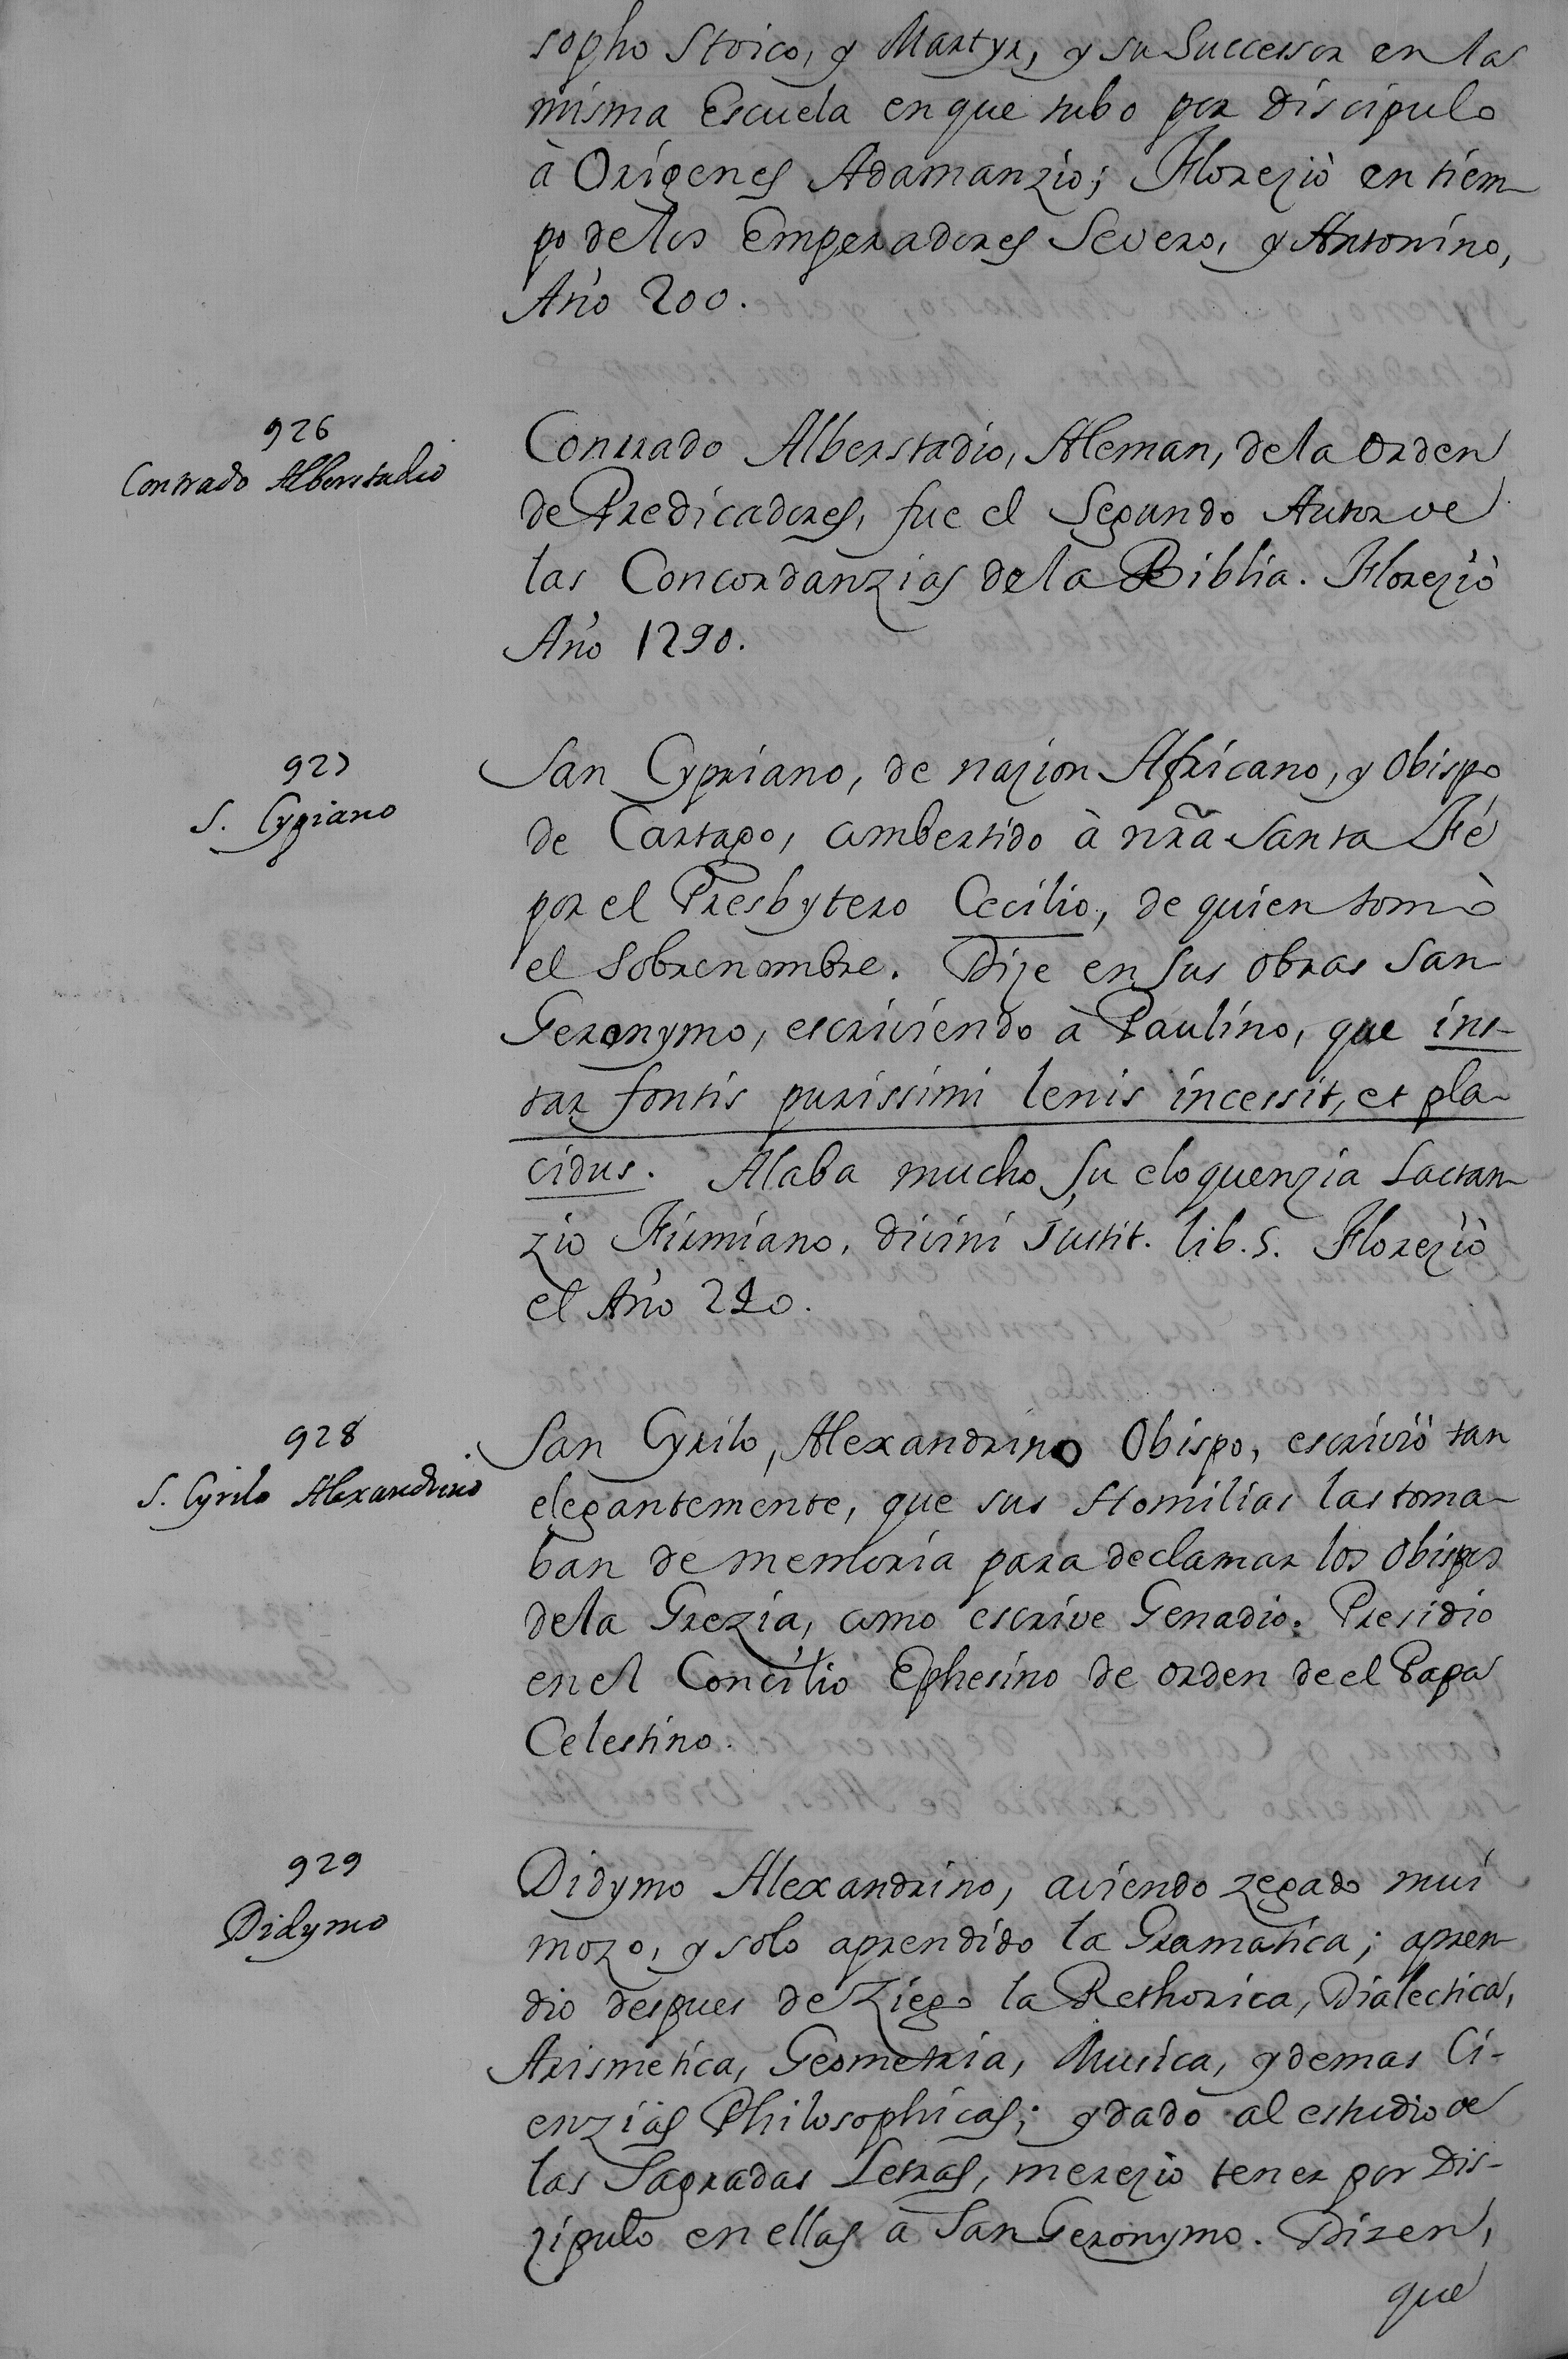 sopho Stoico, y Martyr, y su Successor en la
misma Escuela en que tubo por discipulo
à Orígenes Adamanzio; Florezió en tiem-
po de los Emperadores Severo, y Antonino,
Año 200.
926
Conrado Alberstadio
Conrado Alberstadio, Aleman, de la Orden
de Predicadores, fue el Segundo Autor de
las Concordanzias de la Biblia. Florezió
Año 1290.
927
S. Cypiano
San Cypriano, de nazion Africano, y Obispo
de Cartago, combertido à nrã Santa Fé
por el Presbytero Cecilio, de quien tomò
el Sobrenombre. Dize en sus obras San
Geronymo, escriviendo à Paulino, que ins-
tar fontis purissimi lenis incessit, et pla-
cidus. Alaba mucho su eloquenzia Lactan-
zio Firmiano, divini Justit. lib. 5. Florezió
el Año 240.
928
S. Cyrilo Alexandrino
San Cyrilo, Alexandrino Obispo, escrivió tan
elegantemente, que sus Homilias las toma-
ban de memoria para declamar los Obispos
de la Grezia, como escrive Genadio. Presidio
en el Concilio Ephesino de orden de el Papa
Celestino.
929
Didymo
Didymo Alexandrino, aviendo zegado mui
mozo, y solo aprendido la Gramatica; apren-
dio despues de Ziego la Rethorica, Dialectica,
Arismetica, Geometria, Musica, y demas Ci-
enzias Philosophicas; y dado al estudio de
las Sagradas Letras, merezio tener por Dis-
zipulo en ellas à San Geronymo. Dizen,
que